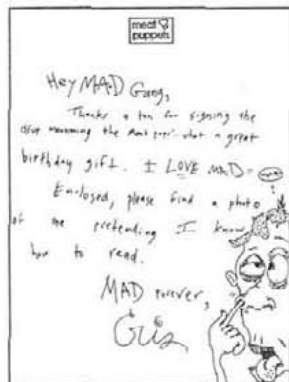 meat
puppets
Hey MAD Gang,
Thanks a ton for signing the
issue mentioning the Meat pups. What a great
birthday gift. I LOVE MAD =
Enclosed, please find a photo
of me pretending I know
how to read.
MAD forever,
Cris